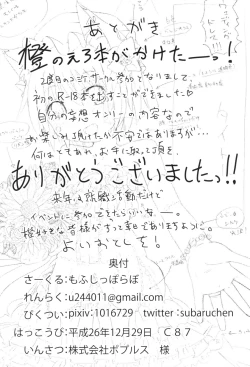 あとがき
橙のえろ本がかけたーっ!
2度目のコミケ、サークル参加となりまして、
初のR-18本を出すことができました♡
自分の妄想オンリーの内容なので
お楽しみ頂けたか不安ではありますが…
何はともあれ、お手に取って頂き、
ありがとうございましたっ!!
来年も就職活動だけど
イベントに参加できたらいいな…ー。
橙好きな皆様がすって来年でありますように。
よいおとしを!
奥付
さーくる:もふしっぽらぼ
れんらく:u244011@gmail.com
ぴくつい:pixiv:1016729 twitter:subaruchen
はっこうび:平成26年12月29日 C87
いんさつ:株式会社ポプルス 様